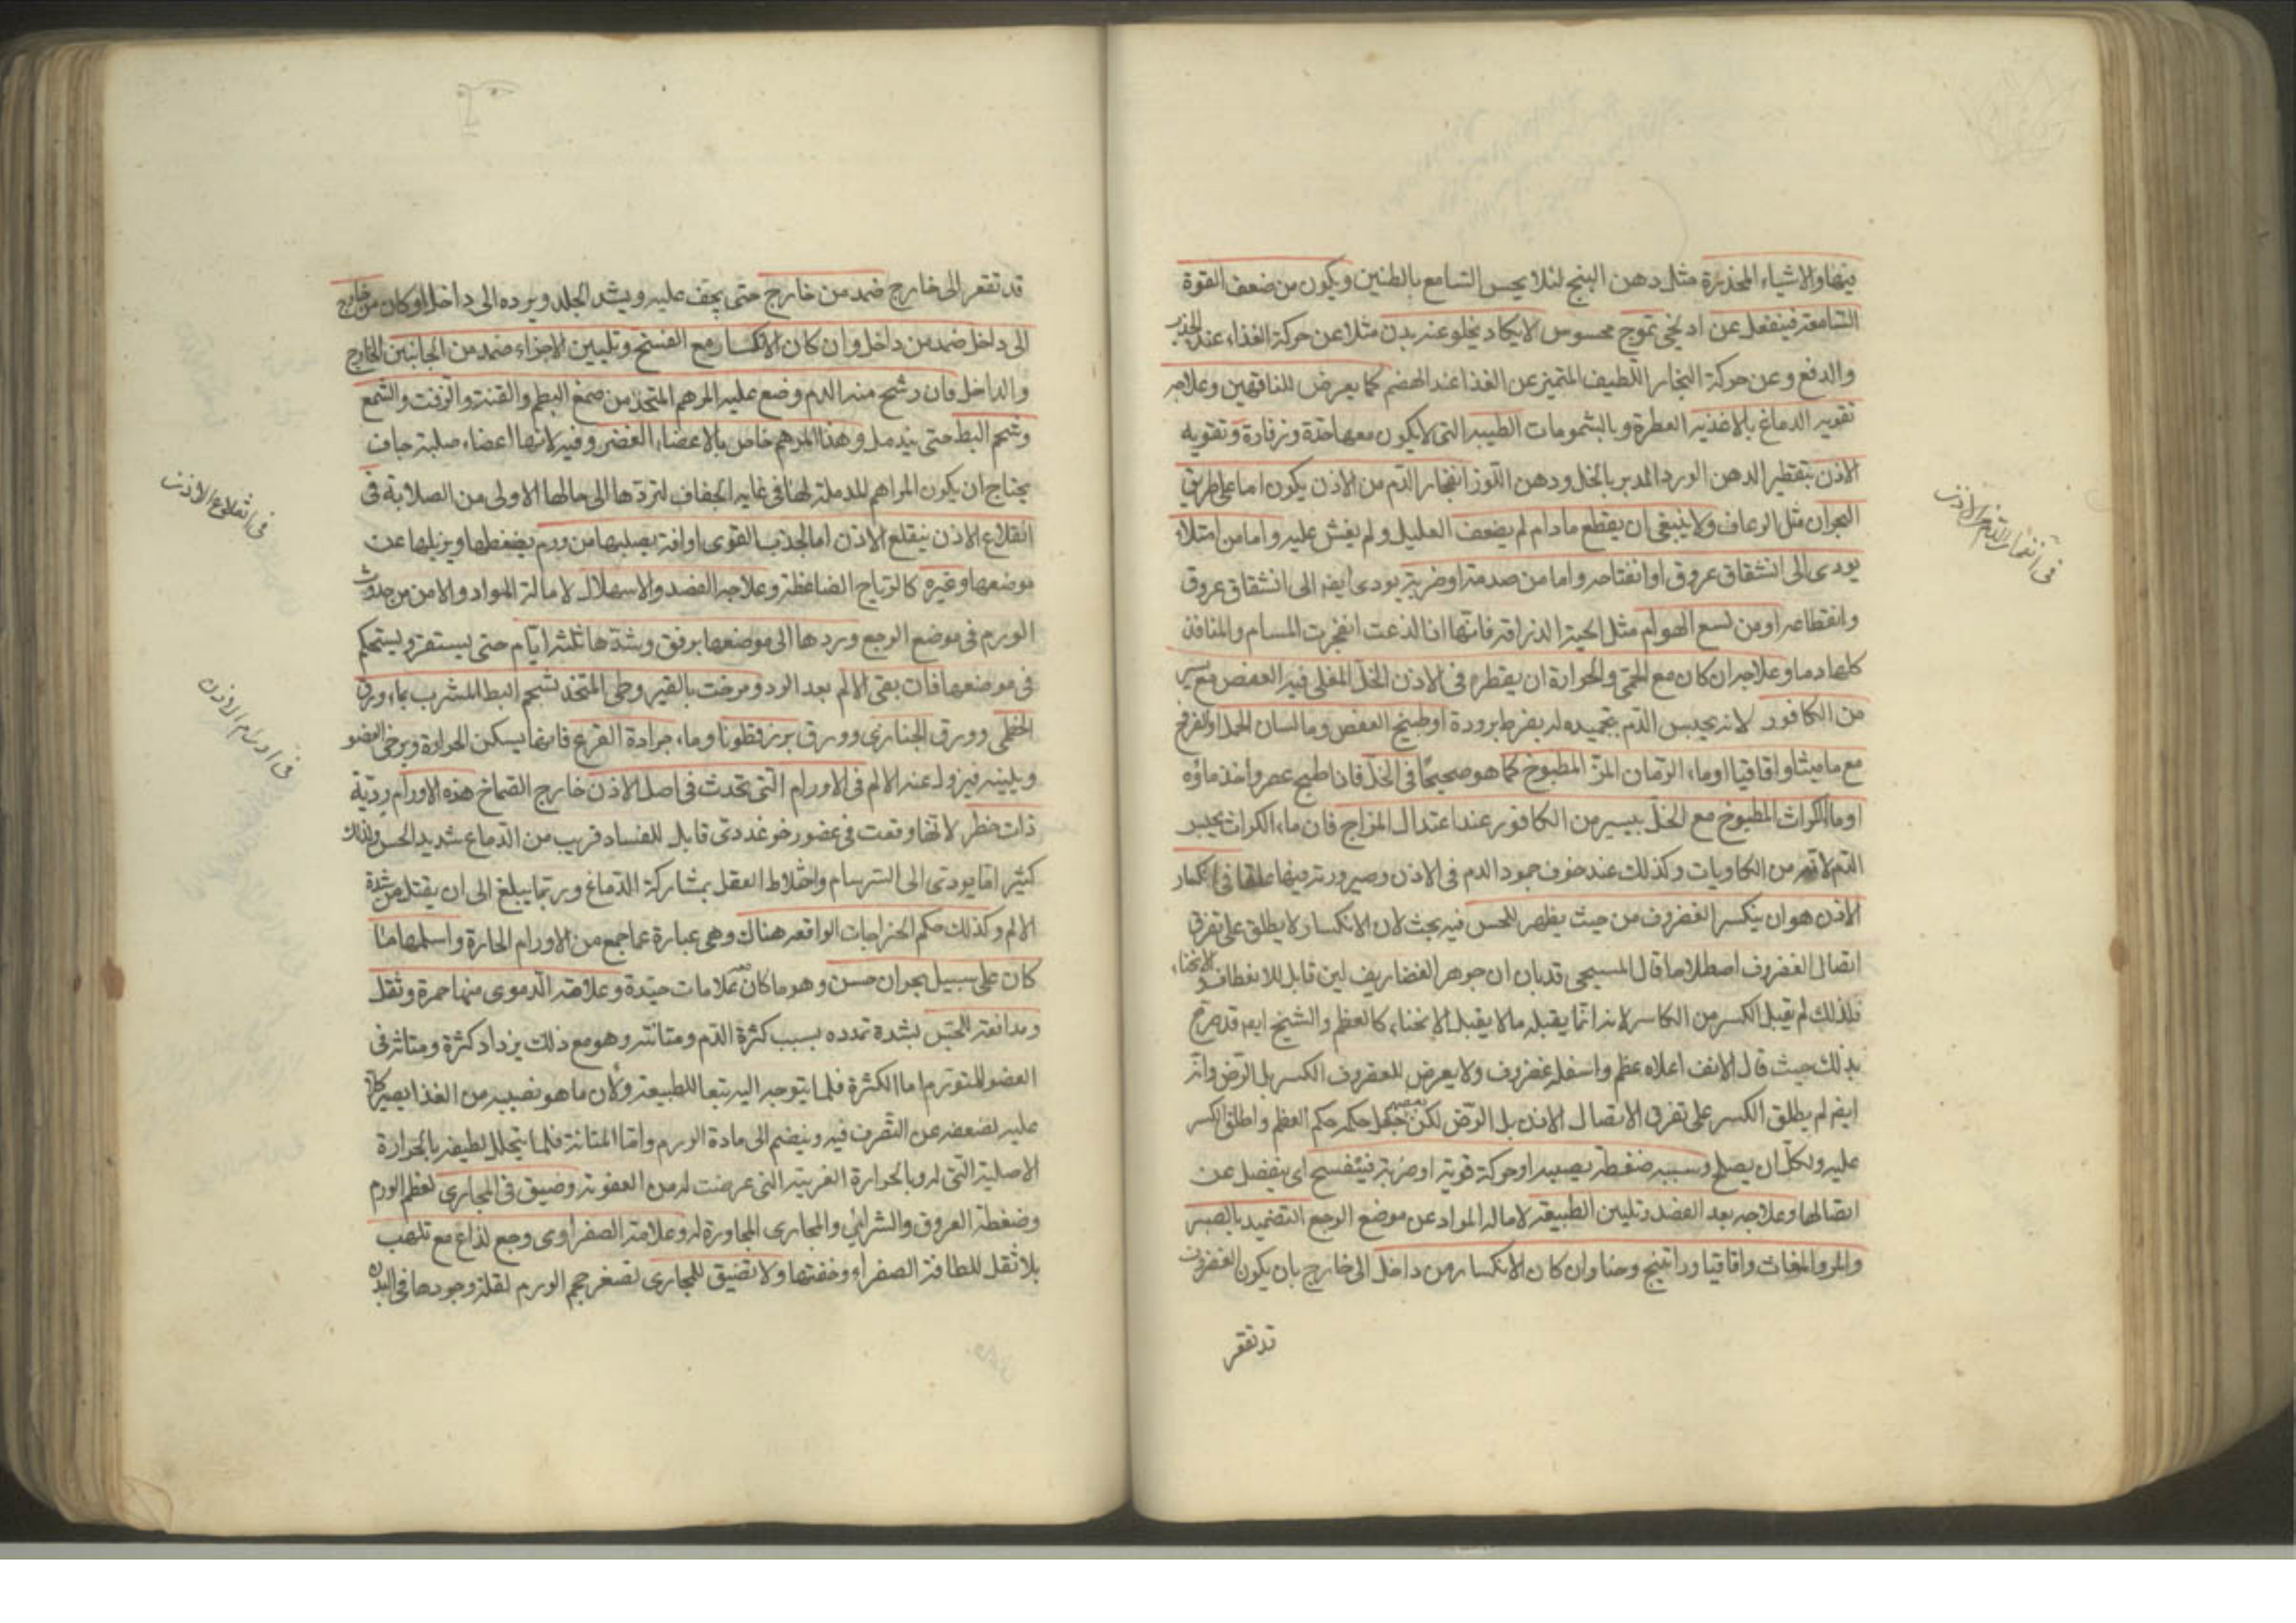 فيها والاشياء المخدرة مثل دهن البنج لئلا يحس السامع بالطنين ويكون من ضعف القوة
السامعة فينفعل عن ادنى تموج محسوس لايكاد يخلو عنه بدن مثلا عن حركة الغذاء عند الجذب
والدفع وعن حركة البخار اللطيف المتميز عن الغذا عند الهضم كما يعرض للناقهين وعلاجه
تقوية الدماغ بالاغذية العطرة وبالشمومات الطيبة التى لايكون معها حدة وزفارة وتقوية
الاذن بتقطير الدهن الورد المدبر بالخل ودهن اللوز انفجار الدم من الاذن يكون اما على طريق
البحران مثل الرعاف ولا ينبغى ان يقطع مادام لم يضعف العليل ولم يغش عليه واما من امتلاء
يودى الى انشقاق عروق او انفتاحه واما من صدمة او ضربة يودى ايضه الى انشقاق عروق
وانقطاعه او من لسع الهوام مثل الحية الذراقة فانها اذا لذعت انفجرت المسام والمنافذ
كلها دما وعلاجه ان كان مع الحمى والحرارة ان يقطر فى الاذن الخل المغلى فيه العفص مع يسير
من الكافور لانه يحبس الدم بتجميده له بفرط برودة او طبيخ العفص وما لسان الحمل او الفرفخ
مع ماميثا واقاقيا او ماء الرمان المز المطبوخ كما هو صحيحا فى الخل فاذا طبخ عصر واخذ ماؤه
او ما الكراث المطبوخ مع الخل بيسير من الكافور عند اعتدال المزاج فان ماء الكراث يحبس
الدم لانه من الكاويات وكذلك عند خوف جمود الدم فى الاذن وصيرورته فيها علقا فى انكسار
الاذن هو ان ينكسر الغضروف من حيث يظهر للحس فيه بحث لان الانكسار لا يطلق على تفرق
اتصال الغضروف اصطلاحا قال المسيحى قد بان ان جوهر الغضاريف لين قابل للانعطاف والانحناء
فلذلك لم يقبل الكسر من الكاسر لانه انما يقبله ما لا يقبل الانحناء كالعظم والشيخ ايضه قد صرح
بذلك حيث قال الانف اعلاه عظم واسفله غضروف ولا يعرض للغضروف الكسر بل الرض وانه
ايضه لم يطلق الكسر على تفرق الاتصال الاذن بل الرض لكن بعضهم جعل حكمه حكم العظم واطلق الكسر
عليه ولكل ان يصطلح وسببه ضغطة يصيبه او حركة قوية او ضربة فيتفسخ اى ينفصل عن
اتصالها وعلاجه بعد الفصد وتليين الطبيعة لامالة المواد عن موضع الوجع التضميد بالصبر
والمر والمغاث واقاقيا وراتينج وحنا وان كان الانكسار من داخل الى خارج بان يكون الغضروف
قد تقعر
فى انفجار الدم من الاذن
قد تقعر الى خارج ضمد من خارج حتى يجف عليه ويشد الجلد ويرده الى داخل او كان من خارج
الى داخل ضمد من داخل وان كان الانكسار مع الفسخ وتليين الاجزاء ضمد من الجانبين الخارج
والداخل فان رشح منه الدم وضع عليه المرهم المتخذ من صمغ البطم والقنة والزفت والشمع
وشحم البط حتى يندمل وهذا المرهم خاص بالاعضاء الغضروفية لانها اعضاء صلبة جاف
يحتاج ان يكون المراهم المدملة لها فى غاية الجفاف لتردها الى حالها الاولى من الصلابة فى
انقلاع الاذن ينقلع الاذن اما لجذب القوى او افة يصيبها من ورم يضغطها ويزيلها عن
موضعها وغيره كالرياح الضاغطة وعلاجه الفصد والاسهال لامالة المواد والامن من حدوث
الورم فى موضع الوجع وردها الى موضعها برفق وشدها ثلثة ايام حتى يستقر ويستحكم
فى موضعها فان بقى الالم بعد الرد ومرخت بالقير وطى المتخذ بشحم البط المشرب بماء ورق
الخطمى وورق الجنازى وورق بزرقطونا وماء جرادة القرع فانها يسكن الحرارة ويرخى العضو
ويلينه فيزول عنه الالم فى الاورام التى تحدث فى اصل الاذن خارج الصماخ هذه الاورام ردية
ذات خطر لانها وقعت فى عضو رخو غددى قابل للفساد قريب من الدماغ شديد الحس ولذلك
كثيرا ما يودى الى السرسام واختلاط العقل بمشاركة الدماغ وربما يبلغ الى ان يقتل من شدة
الالم وكذلك حكم الخراجات الواقعه هناك وهى عبارة عما جمع من الاورام الحارة واسلمها ما
كان على سبيل بحران حسن وهو ما كان معه علامات جيدة وعلامة الدموى منها حمرة وثقل
ومدافعة للحس بشدة تمدده بسبب كثرة الدم ومتانته وهو مع ذلك يزداد كثرة ومتانة فى
العضو المتورم اما الكثرة فلما يتوجه اليه تبعا للطبيعة ولان ما هو نصيبه من الغذا يصير كلا
عليه لضعفه عن التصرف فيه وينضم الى مادة الورم واما المتانة فلما يتحلل لطيفه بالحرارة
الاصلية التى له وبالحرارة الغريبة التى عرضت له من العفونة وضيق فى المجارى لعظم الورم
وضغطة العروق والشرائين والمجارى المجاورة له وعلامة الصفراوى وجع لذاع مع تلهب
بلا ثقل للطافة الصفراء وخفتها ولا تضيق للمجارى لصغر حجم الورم لقلة وجودها فى البدن
فى انقلاع الاذن
فى اورام الاذن